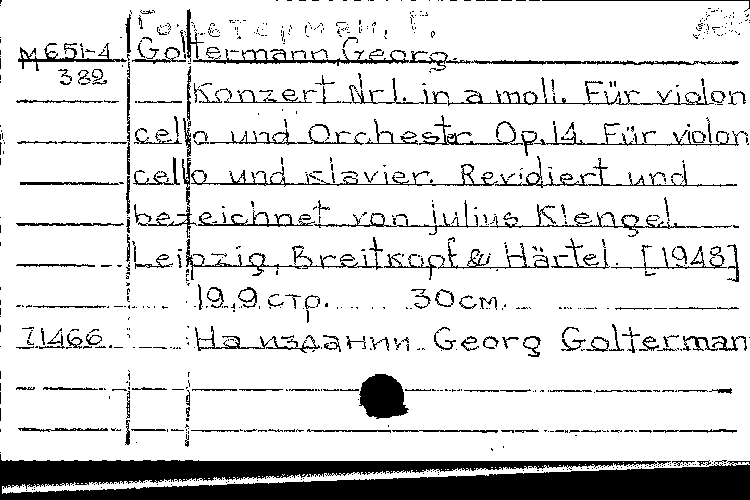 Гольтерман, Г.
М651-4 Goltermann, Georg.
382
Konzert Nr1. in a moll. Für violon
cello und Orchestr. Op.14. Für violon
cello und Klavier. Revidiert und
bezeichnet von Julius Klengel.
Leipzig, Breitkopf & Härtel. [1948]
19,9 стр. 30см.
71466. На издании Georg Golterman